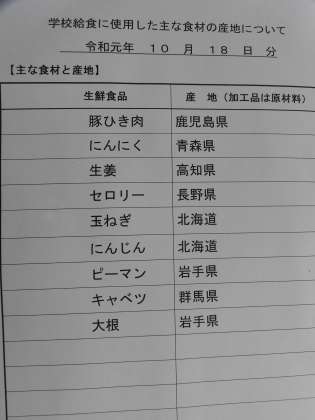 学校給食に使用した主な食材の産地について
令和元年 10 月 18 日 分
【主な食材と産地】
生鮮食品 産 地（加工品は原材料）
豚ひき肉 鹿児島県
にんにく 青森県
生姜 高知県
セロリー 長野県
玉ねぎ 北海道
にんじん 北海道
ピーマン 岩手県
キャベツ 群馬県
大根 岩手県